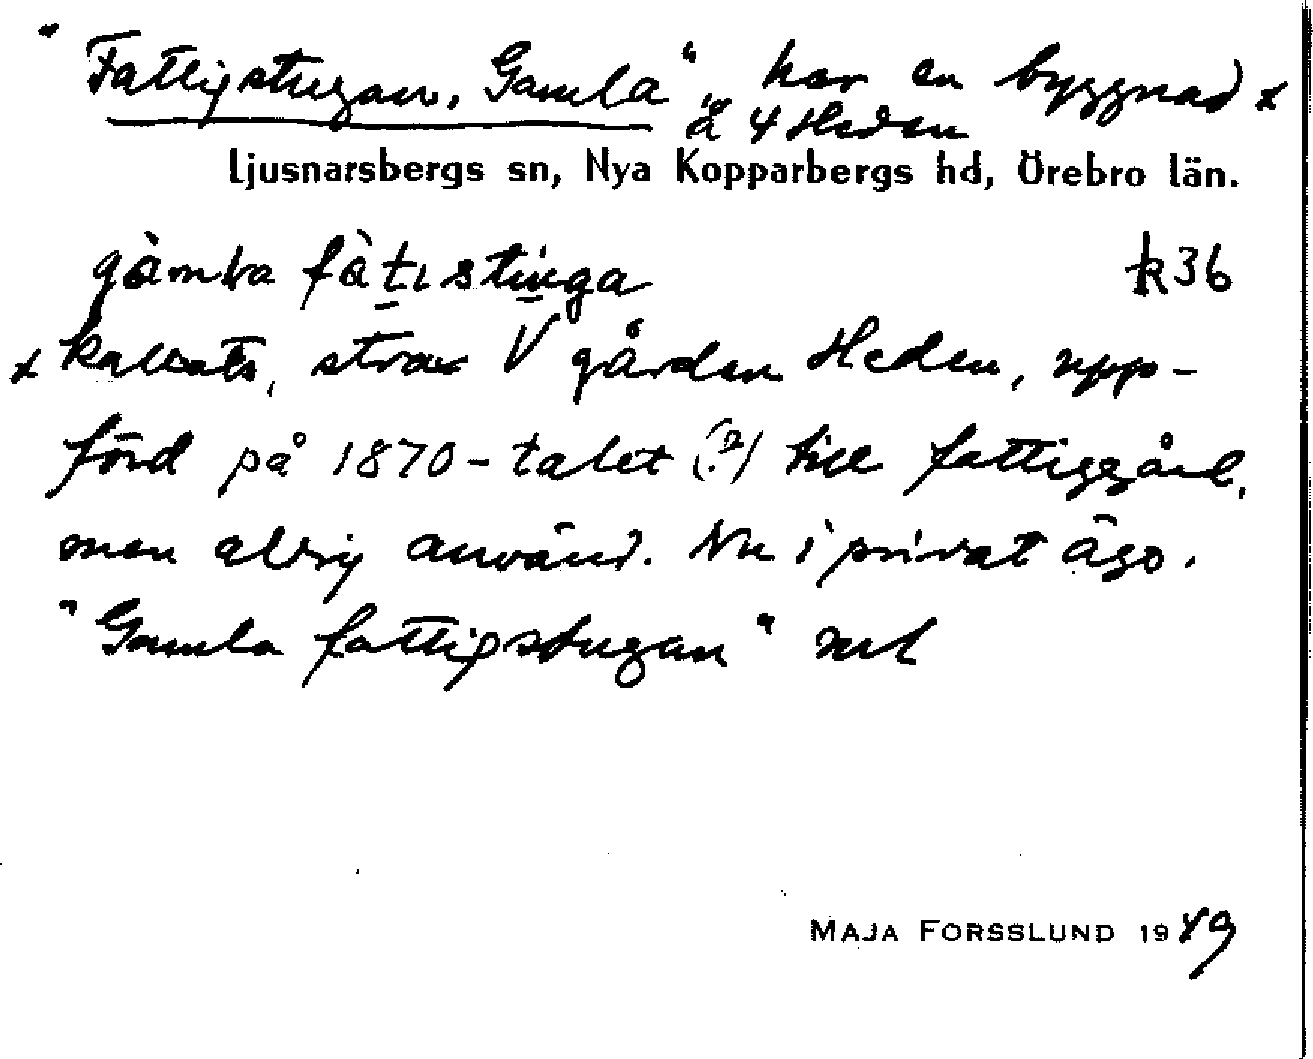 "Fattigstugan, Gamla", har en byggnad x
å 4 Heden
Ljusnarsbergs sn, Nya Kopparbergs hd, Örebro län.
gàmla fàtistuga k36
x kallats, strax V gården Heden, upp-
förd på 1870-talet (?) till fattiggård,
men aldrig använd. Nu i privat ägo.
"Gamla fattigstugan" uel
MAJA FORSSLUND 1949